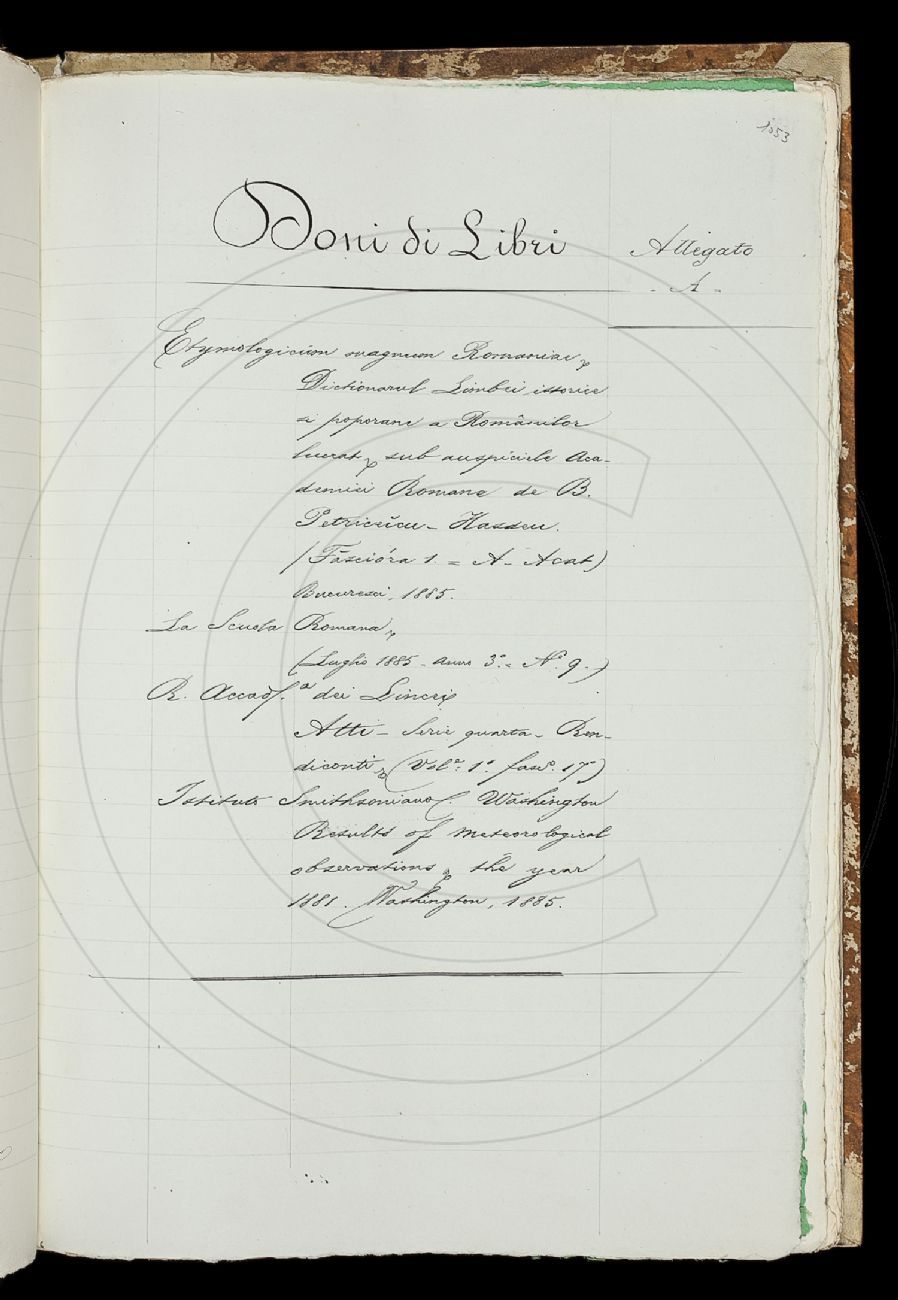 1053
Doni di Libri
Allegato
- A -
Etymologicum magnum Romaniae
Dictionarul Limbei istorice
si poporane a Românilor
lucrat sub auspiciele Aca-
demiei Romane de B.
Petriceicu - Hasdeu.
(Făscióra 1. = A - Acat)
Bucuresci, 1885.
La Scuola Romana,
(Luglio 1885 - anno 3.° = N.° 9.)
R. Accad.a dei Lincei
Atti - Serie quarta - Ren-
diconti (Vol.e 1.° fasc.° 17°)
Istituto Smithsoniano. Washington
Results of meteorological
observations the year
1881. Washington, 1885.